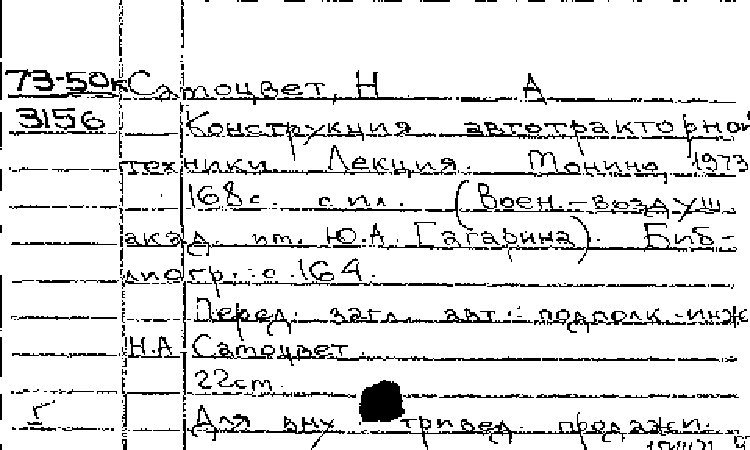 73-50к Самоцвет, Н А
3156 Конструкция автотракторной
техники Лекция. Монино, 1973
168с. с ил. (Воен.-воздуш.
акад. им. Ю.А. Гагарина). Биб-
лиогр.: с. 164.
Перед. загл. авт.: подполк.-инж
Н.А. Самоцвет.
22см.
Для вну тривед. продажи.